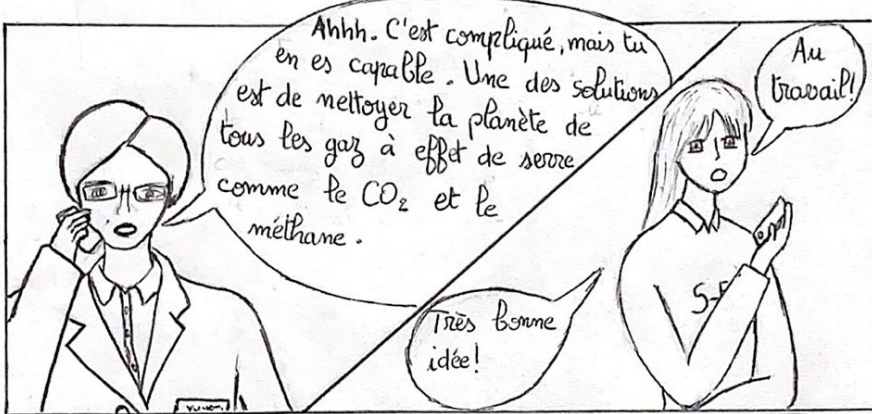 Ahhh. C'est compliqué, mais tu
en es capable. Une des solutions
est de nettoyer la planète de
tous les gaz à effet de serre
comme le CO₂ et le
méthane.
Très bonne
idée!
Au
travail!